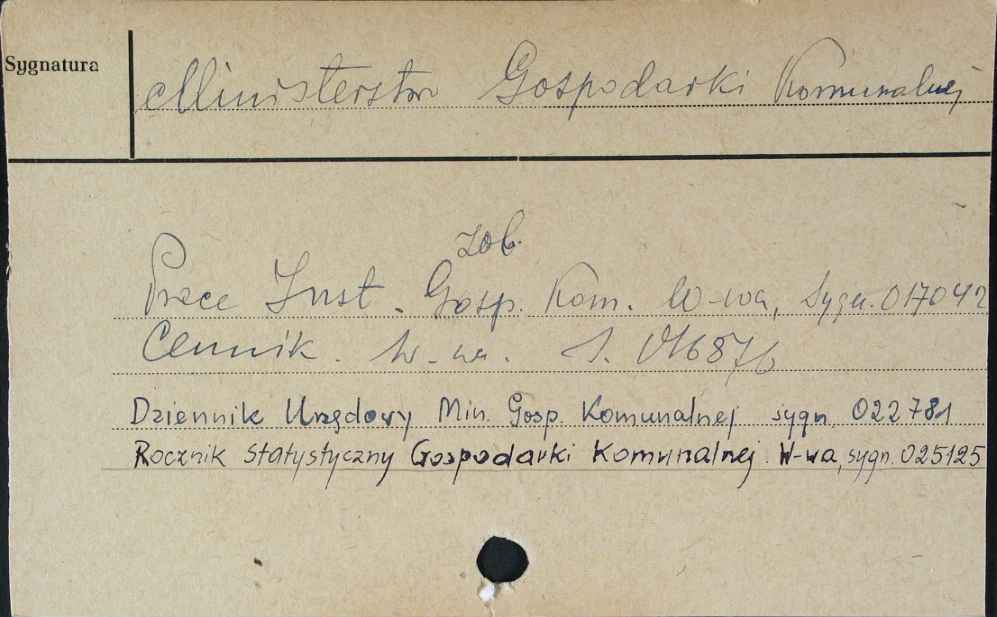 Sygnatura
Ministerstwo Gospodarki Komunalnej
zob.
Prace Inst. Gosp. Kom. W-wa, Sygn. 017042
Cennik. W-wa. S. 016876
Dziennik Urzędowy Min. Gosp. Komunalnej sygn. 022781
Rocznik Statystyczny Gospodarki Komunalnej. W-wa, sygn. 025125